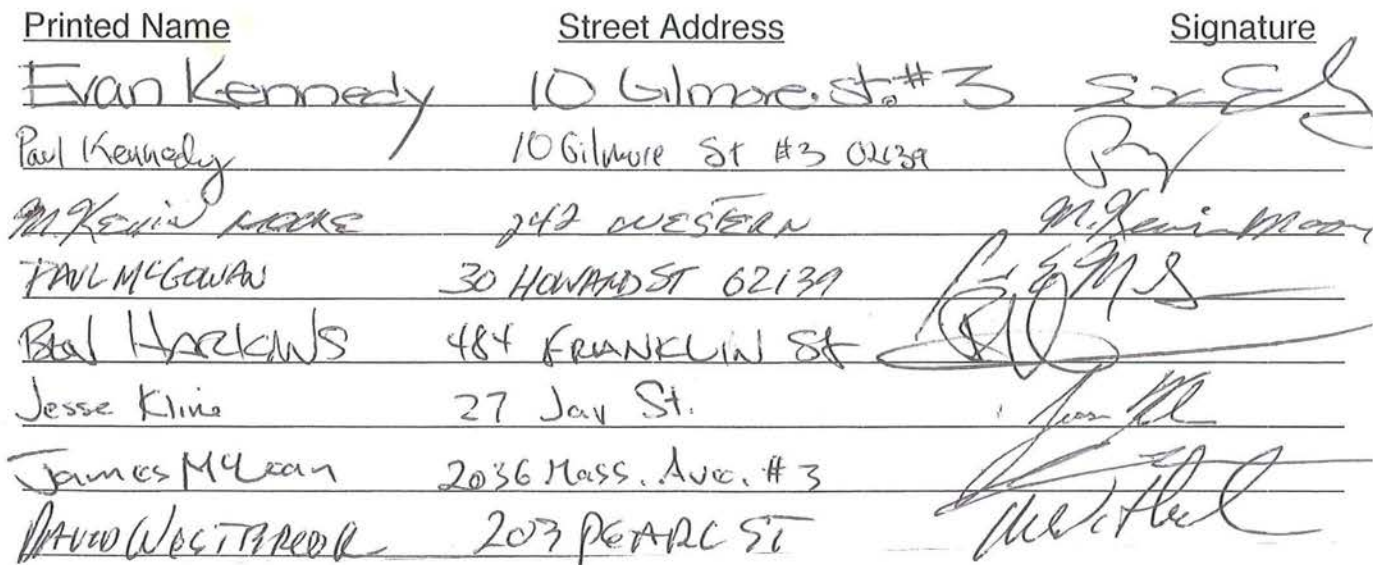 Printed Name Street Address Signature
Evan Kennedy 10 Gilmore. St. #3
Paul Kennedy 10 Gilmore St #3 02139
M. Kevin MOORE 242 WESTERN M. Kevin Moore
PAUL McGOWAN 30 HOWARD ST 02139
HARKINS 484 FRANKLIN St
Jesse Kline 27 Jay St.
James McLean 2036 Mass. Ave. #3
DAVID 203 PEARL ST